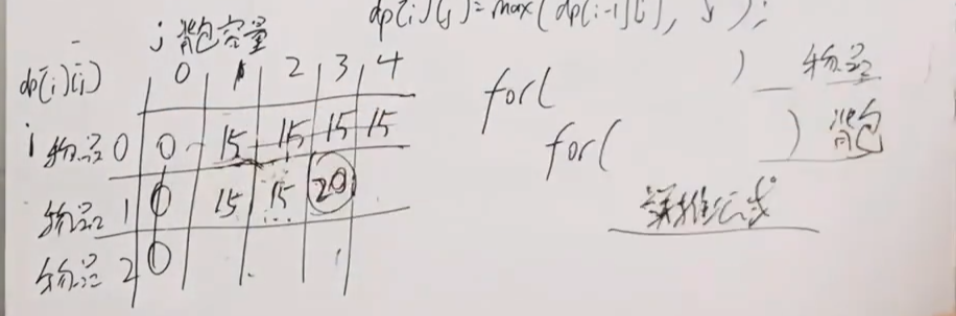 dp[i][j]=max(dp[i-1][j], );
j 背包容量
dp[i][j] 0 1 2 3 4
i 物品0 0 15 15 15 15
物品1 0 15 15 20
物品2 0
for( ) 物品
for( ) 背包
递推公式